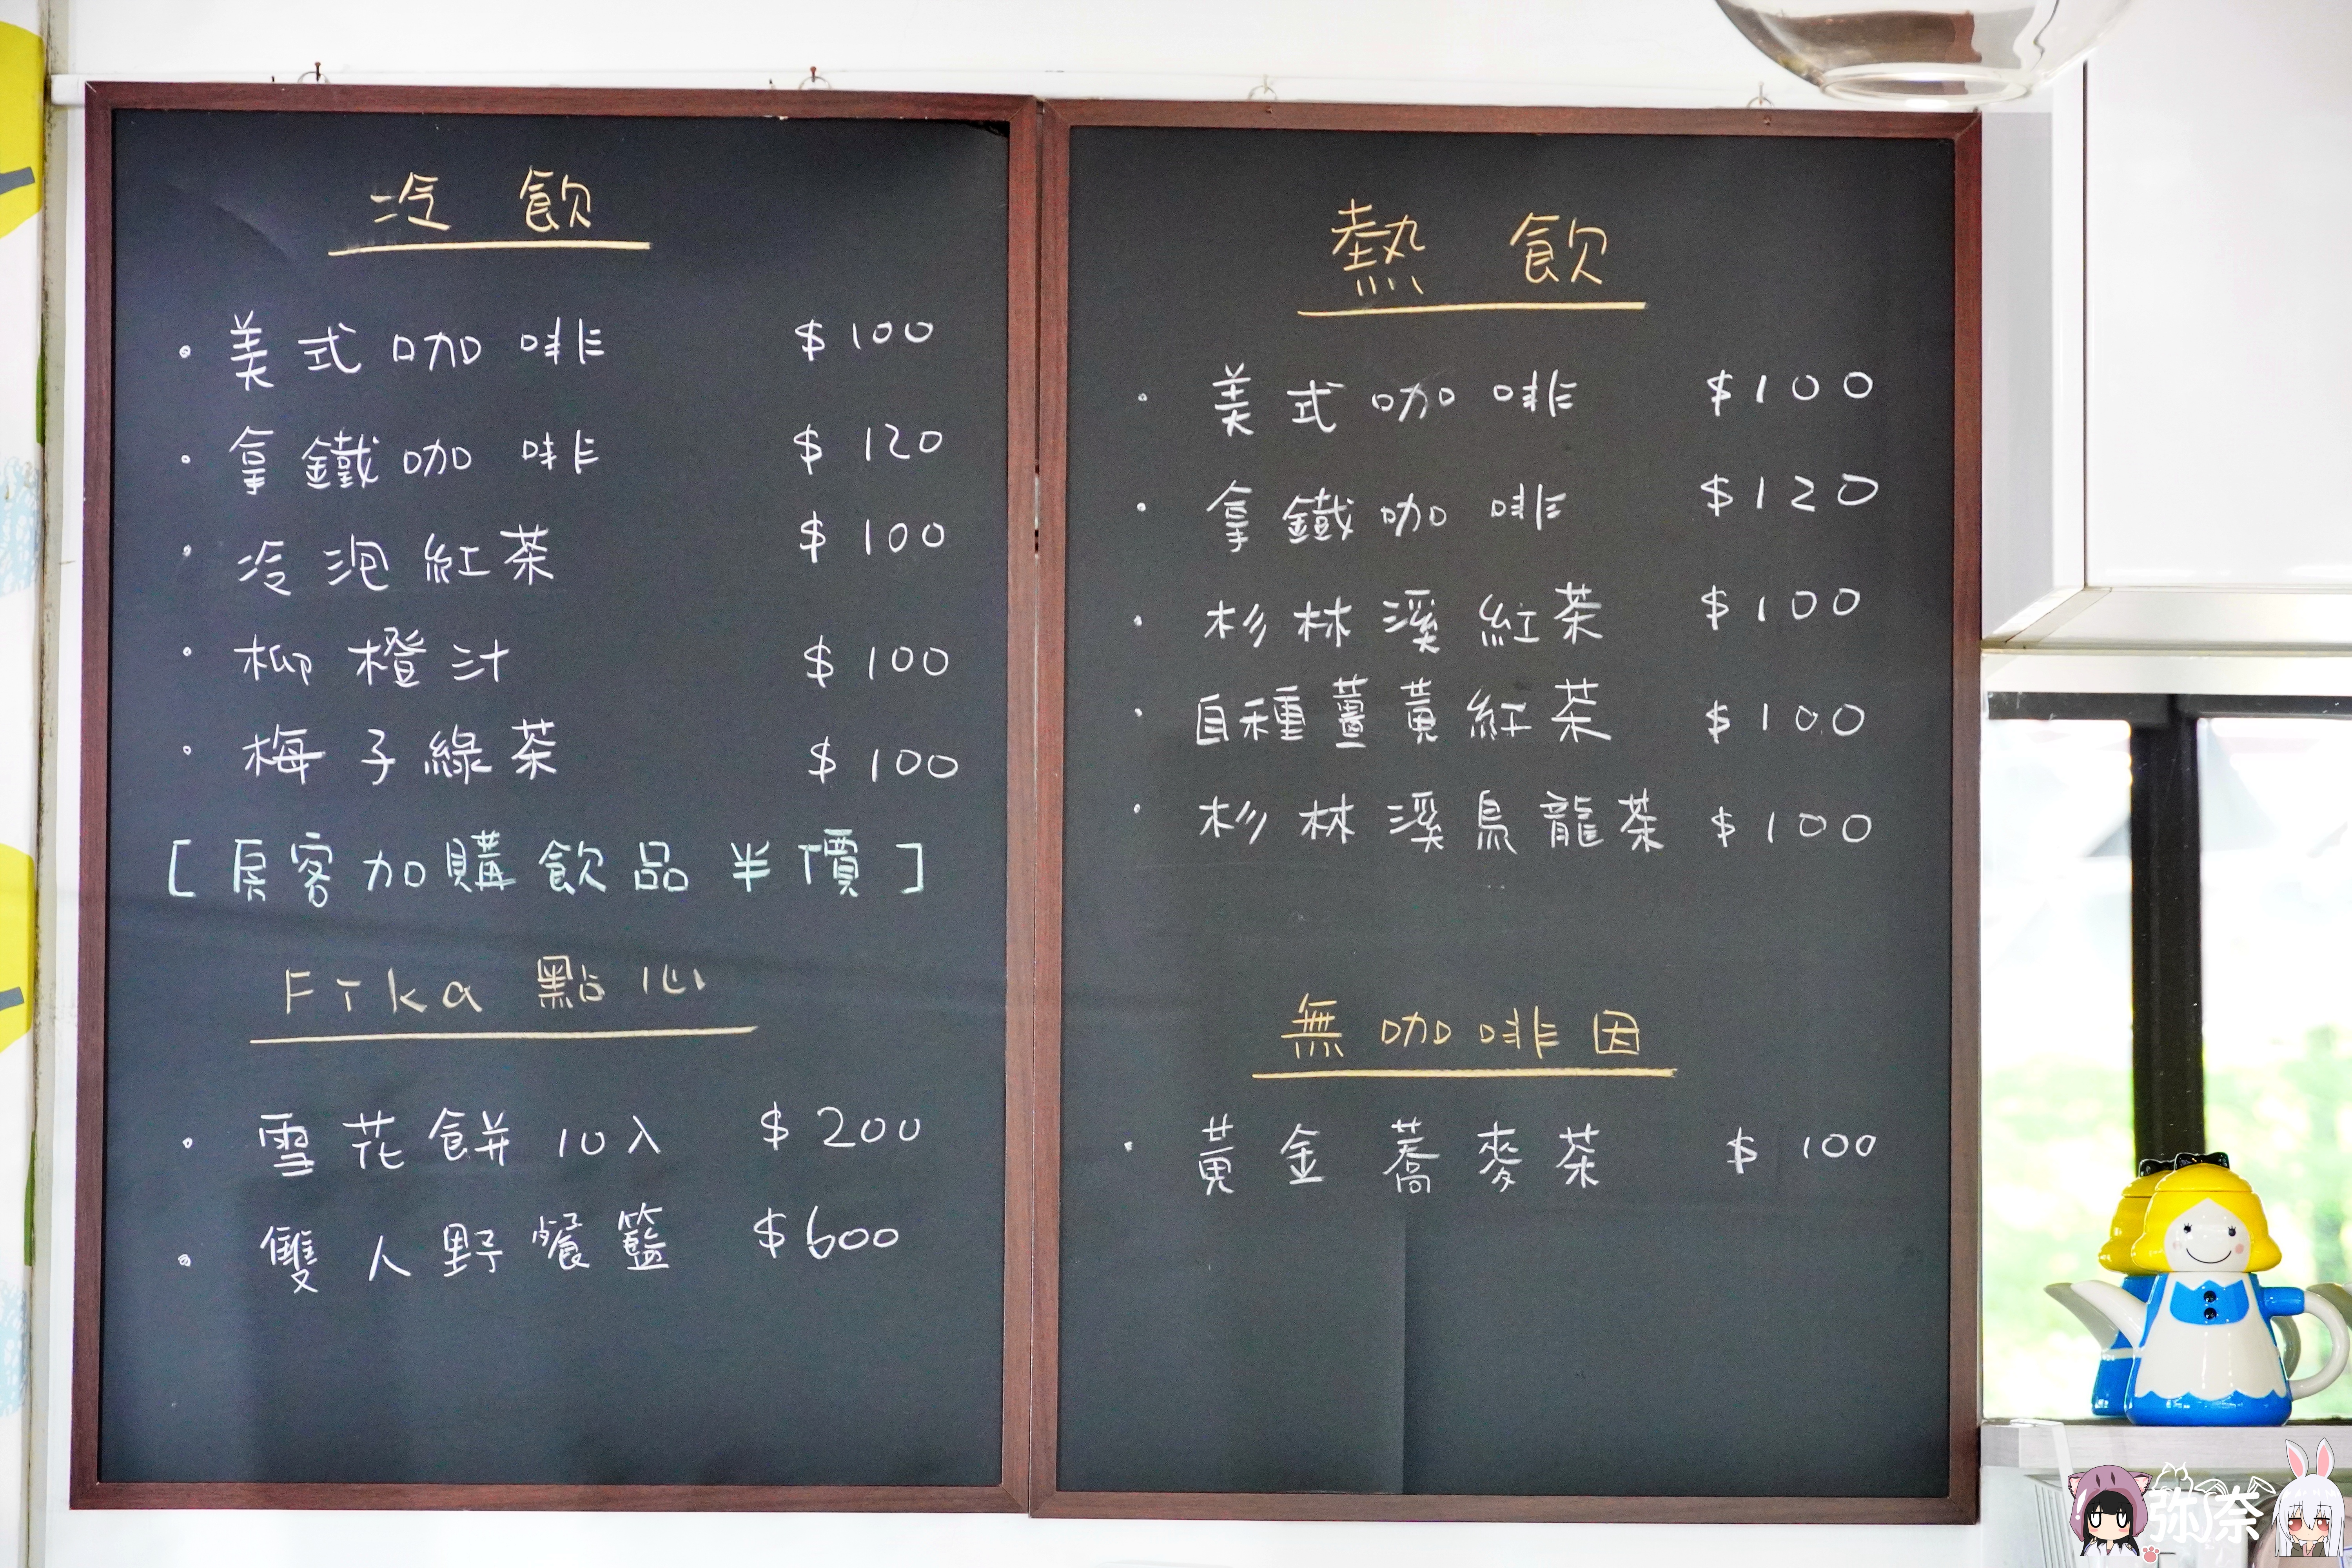 冷飲
• 美式咖啡 $100
• 拿鐵咖啡 $120
• 冷泡紅茶 $100
• 柳橙汁 $100
• 梅子綠茶 $100
[房客加購飲品半價]
Fika 點心
• 雪花餅10入 $200
• 雙人野餐籃 $600
熱飲
• 美式咖啡 $100
• 拿鐵咖啡 $120
• 杉林溪紅茶 $100
• 自種薑黃紅茶 $100
• 杉林溪烏龍茶 $100
無咖啡因
• 黃金蕎麥茶 $100
弥奈